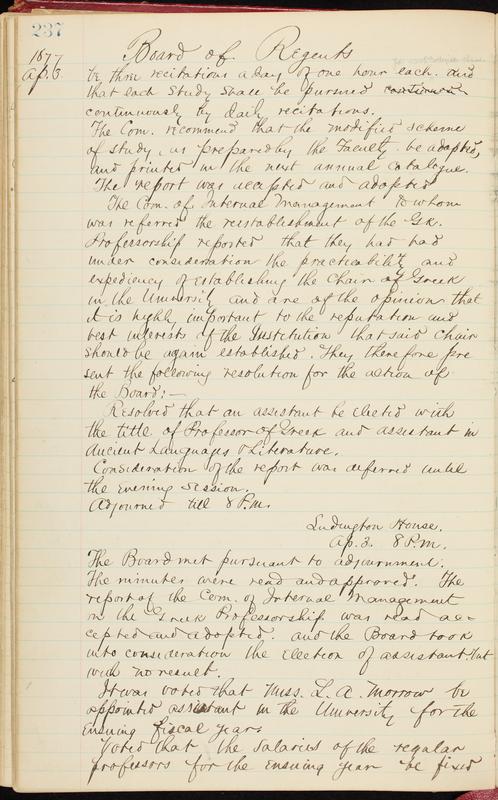 237
1877 Board of Regents
Ap. 3.
be three recitations a day of one hour each. and
that each study shall be pursued continued
continuously by daily recitations.
The Com. recommend that the modified scheme
of study, as prepared by the Faculty. be adopted,
and printed in the next annual catalogue.
The report was accepted and adopted
The Com. of Internal Management to whom
was referred the reestablishment of the Gk.
Professorship reported that they had had
under consideration the practicability and
expediency of establishing the Chair of Greek
in the University and are of the opinion that
it is highly important to the reputation and
best interests of the Institution that said chair
should be again established. They therefore pre
sent the following resolution for the action of
the Board:—
Resolved that an assistant be elected with
the title of Professor of Greek and assistant in
Ancient Languages & Literature.
Consideration of the report was deferred until
the evening session.
Adjourned till 8 P.M.
Ludington House.
Ap. 3. 8 P.M.
The Board met pursuant to adjournment.
The minutes were read and approved. The
report of the Com. of Internal Management
on the Greek Professorship was read ac-
cepted and adopted. and the Board took
into consideration the election of assistant but
with no result.
It was voted that Miss. L. A. Morrow be
appointed assistant in the University for the
ensuing fiscal year.
Voted that the salaries of the regular
professors for the ensuing year be fixed